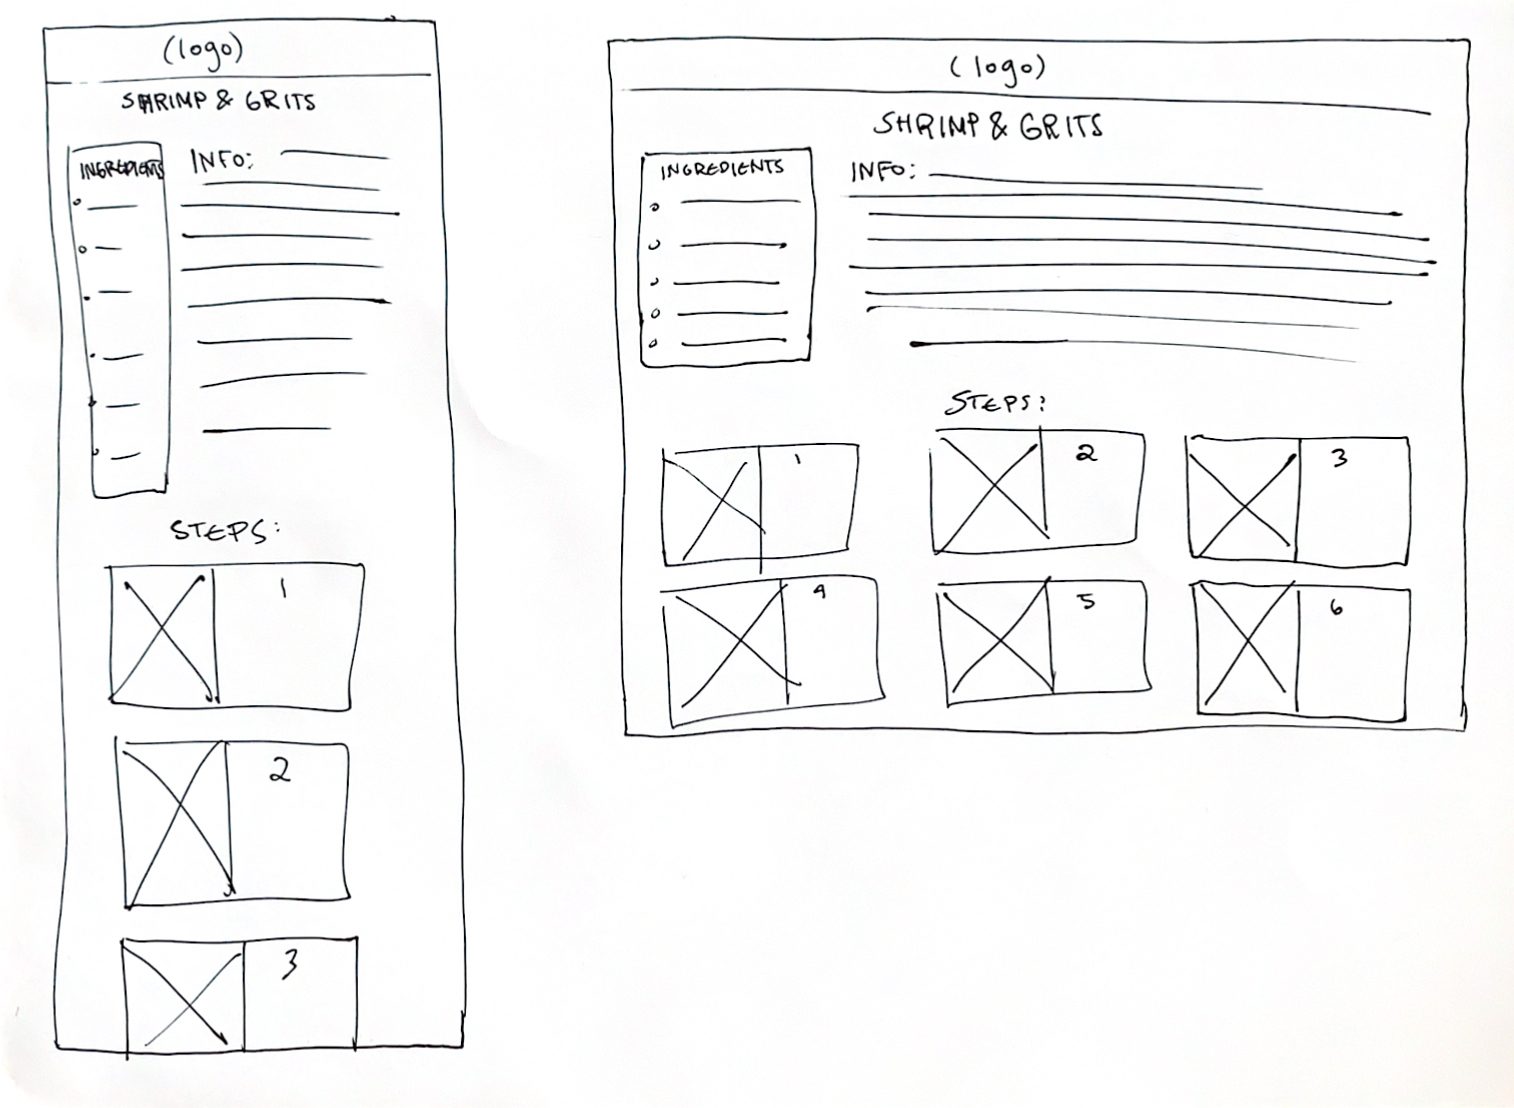 (logo)
SHRIMP & GRITS
INGREDIENTS
INFO:
STEPS:
1
2
3
(logo)
SHRIMP & GRITS
INGREDIENTS
INFO:
STEPS:
1
2
3
4
5
6